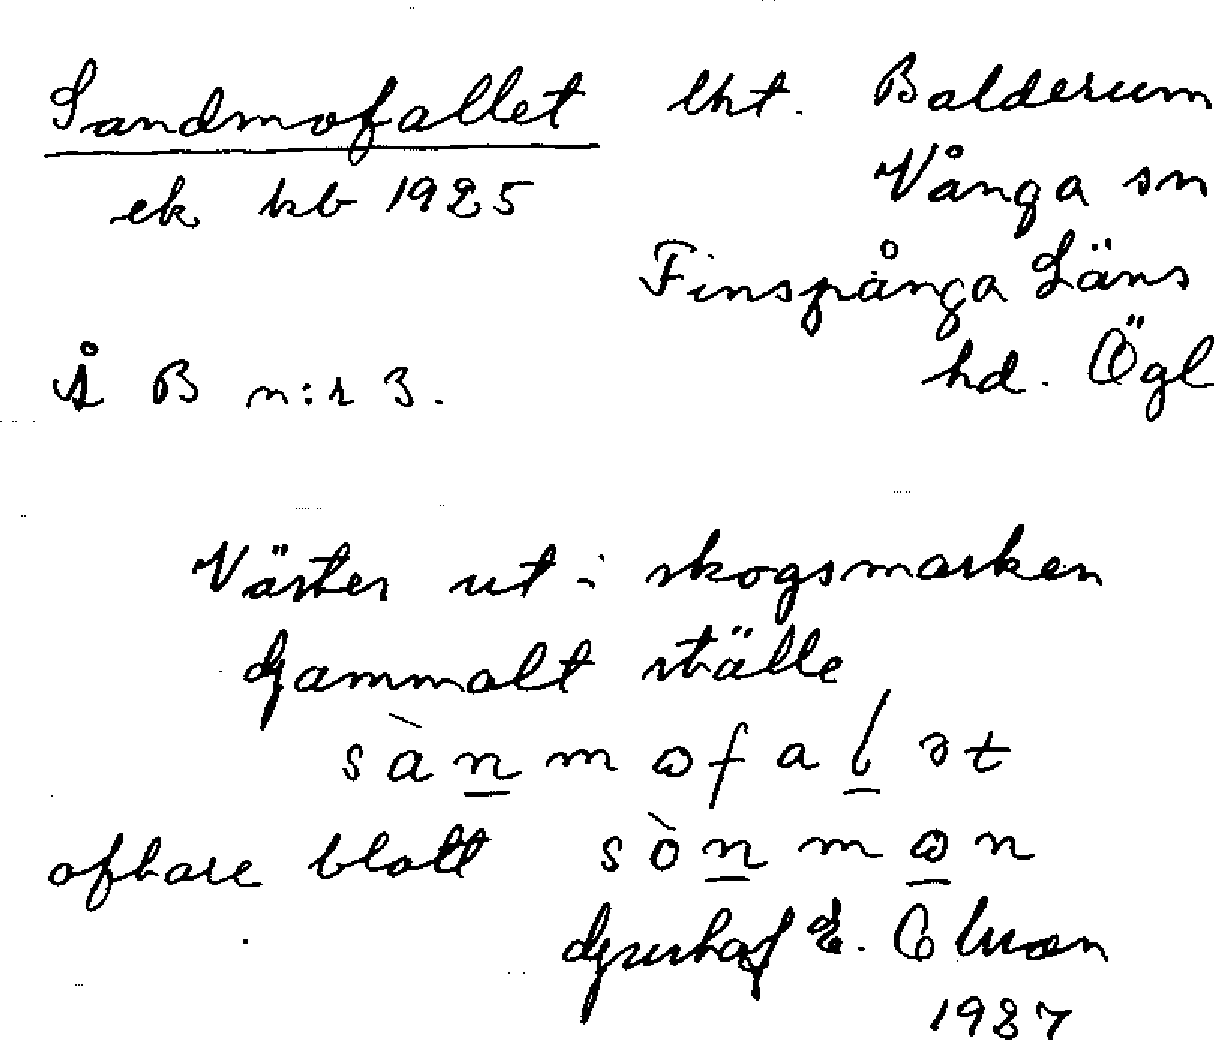 Sandmofallet lht. Balderum
ek kb 1925 Vånga sn
Finspånga Läns
Å B n:r 3. hd. Ögl
Väster ut i skogsmarken
Gammalt ställe
sànmofalət
oftare blott sònmon
Gustaf E. Olsson
1937